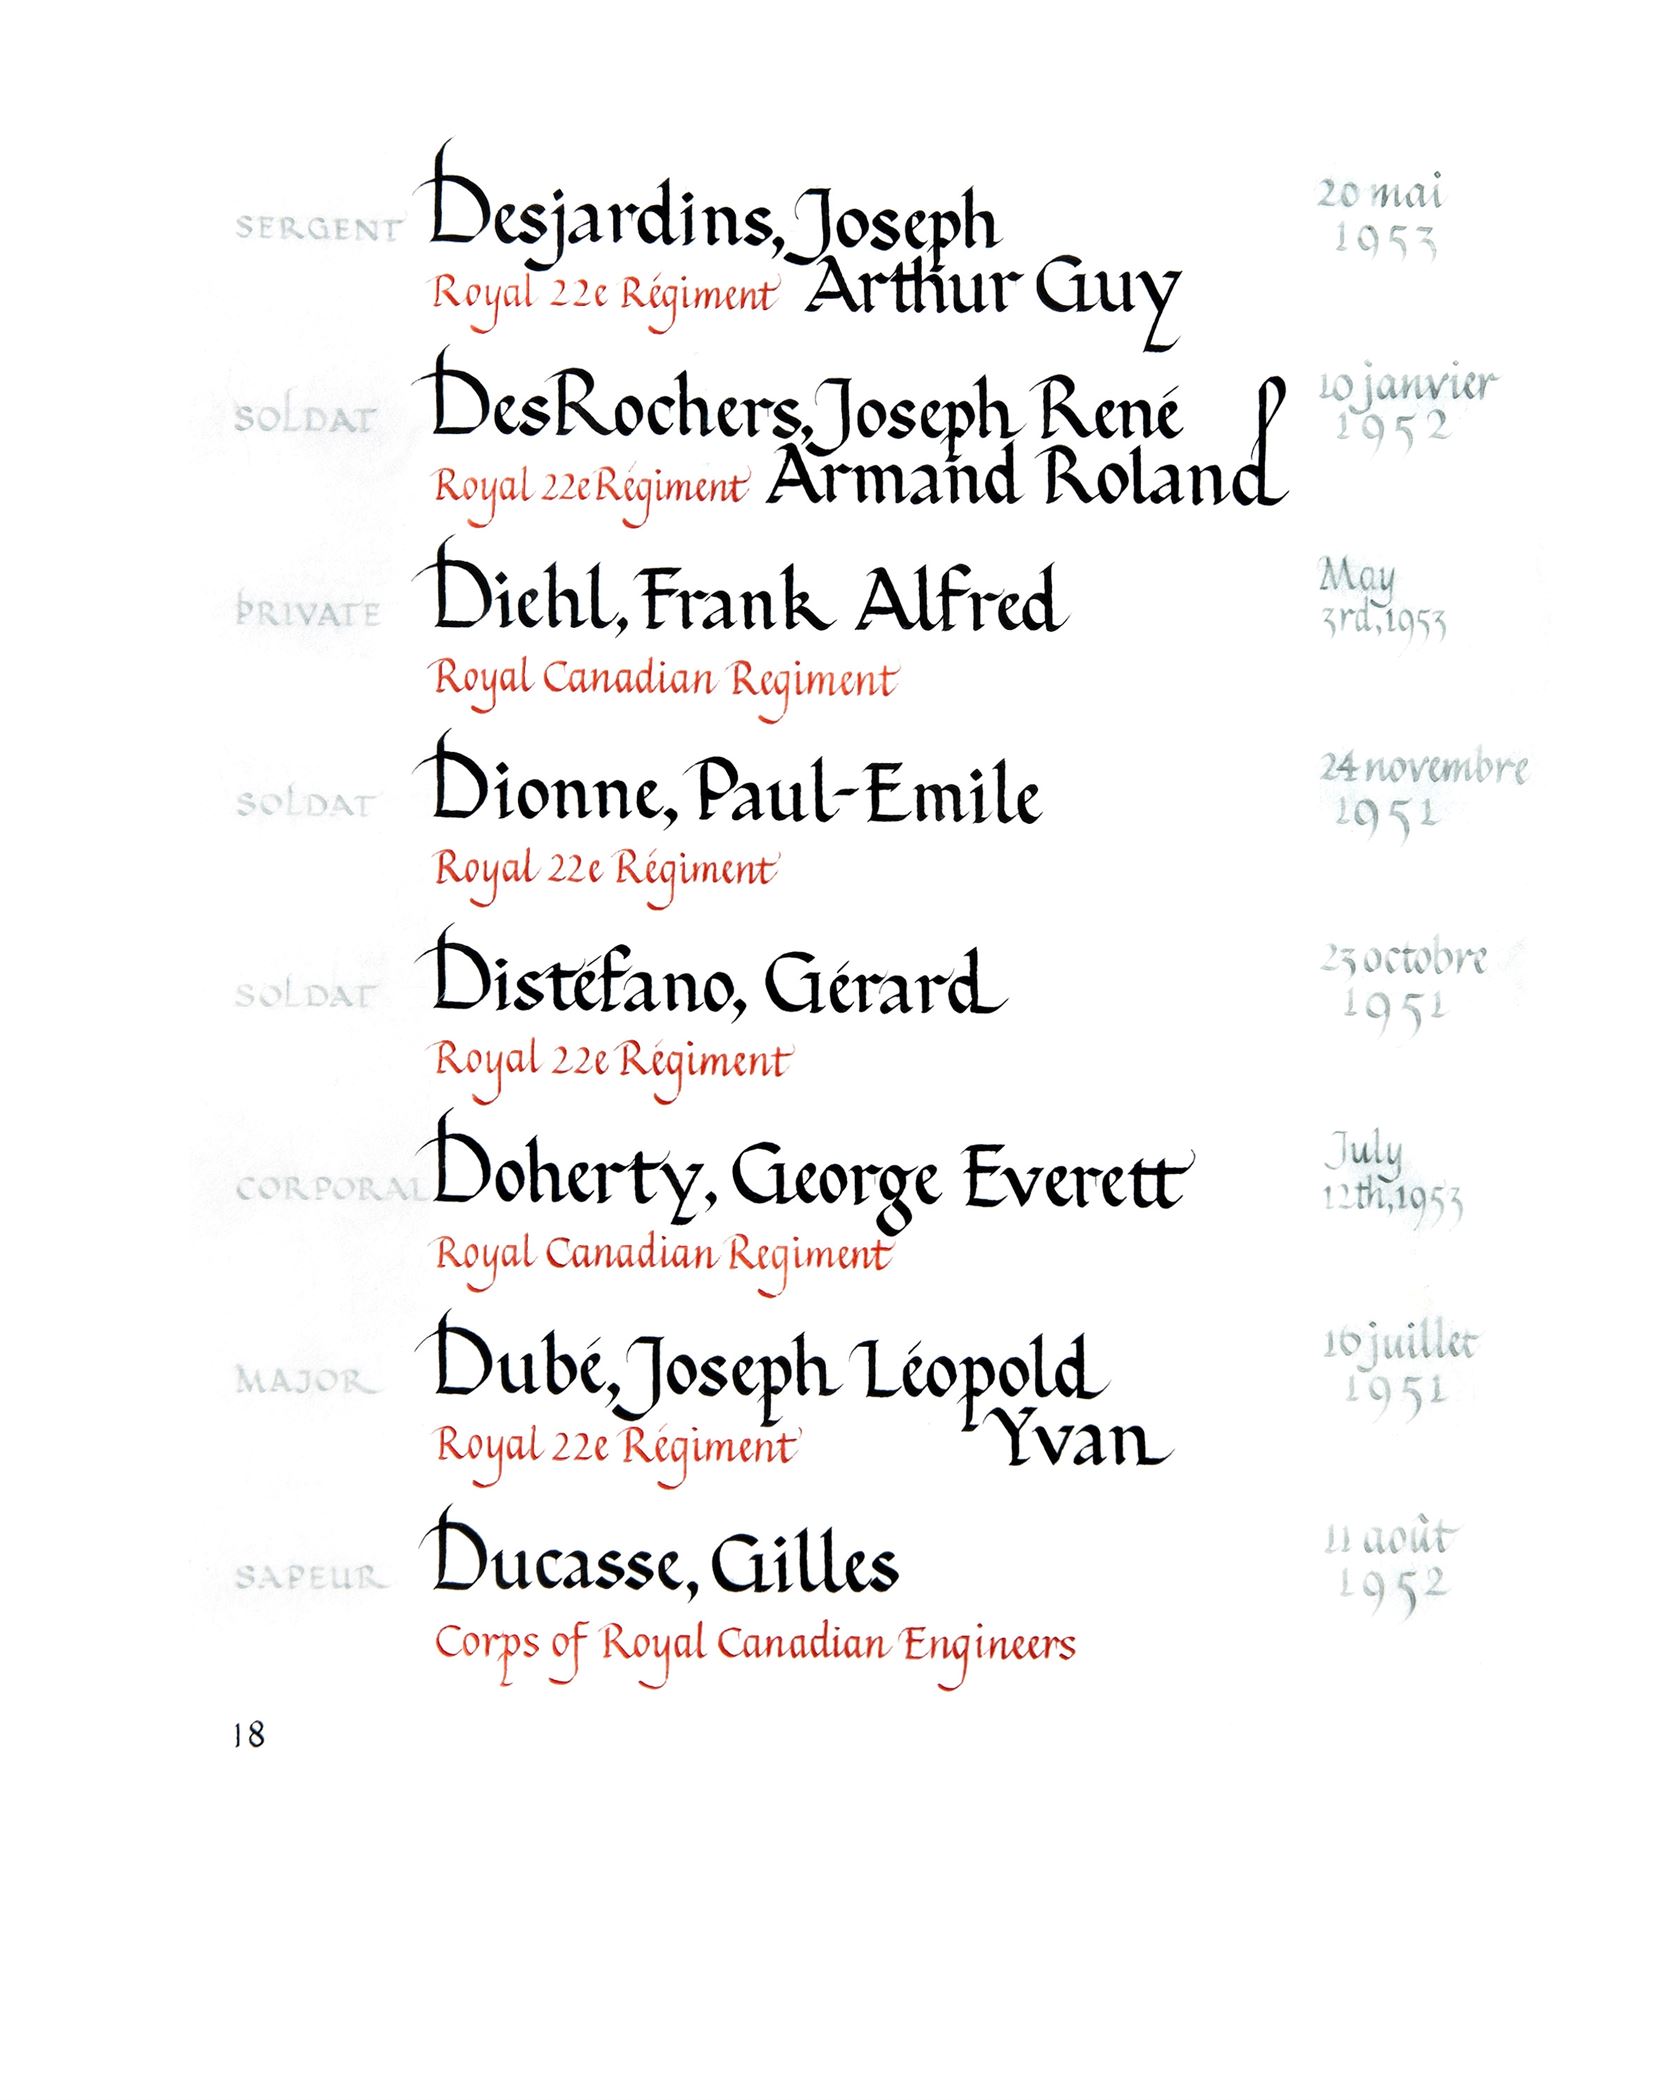 SERGENT Desjardins, Joseph 20 mai
1953
Royal 22e Régiment Arthur Guy
SOLDAT DesRochers, Joseph René 10 janvier
1952
Royal 22e Régiment Armand Roland
PRIVATE Diehl, Frank Alfred May
3rd, 1953
Royal Canadian Regiment
SOLDAT Dionne, Paul-Emile 24 novembre
1951
Royal 22e Régiment
SOLDAT Distéfano, Gérard 23 octobre
1951
Royal 22e Régiment
CORPORAL Doherty, George Everett July
12th, 1953
Royal Canadian Regiment
MAJOR Dubé, Joseph Léopold 16 juillet
1951
Royal 22e Régiment Yvan
SAPEUR Ducasse, Gilles 11 août
1952
Corps of Royal Canadian Engineers
18